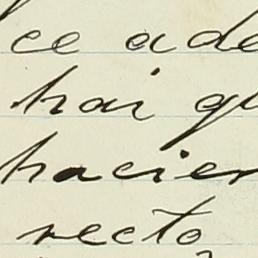 ce ade
hai qu
hacien
recto